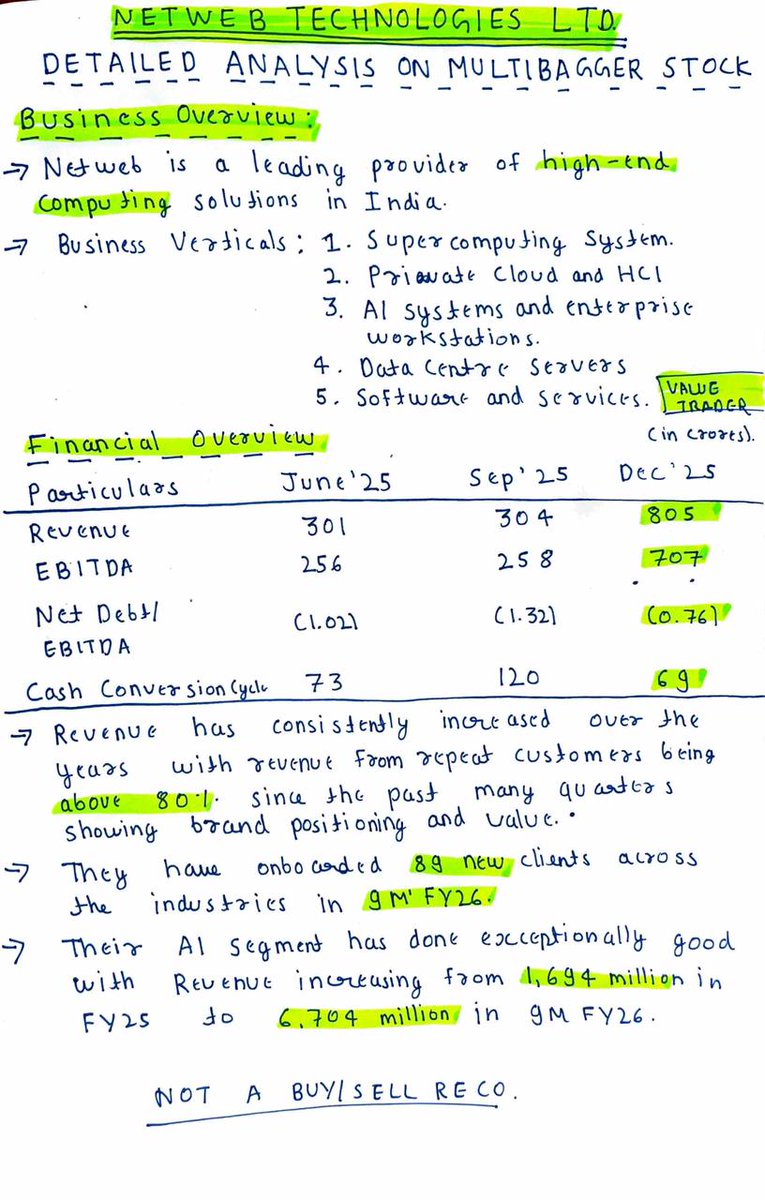 NETWEB TECHNOLOGIES LTD.
DETAILED ANALYSIS ON MULTIBAGGER STOCK
Business Overview:
→ Netweb is a leading provider of high-end
computing solutions in India.
→ Business Verticals: 1. Supercomputing System.
2. Private Cloud and HCI
3. AI systems and enterprise
workstations.
4. Data Centre Servers
5. Software and services.
VALUE
TRADER
(in crores).
Financial Overview
Particulars June'25 Sep'25 Dec'25
Revenue 301 304 805
EBITDA 256 258 707
Net Debt/
EBITDA (1.02) (1.32) (0.76)
Cash Conversion Cycle 73 120 69
→ Revenue has consistently increased over the
years with revenue from repeat customers being
above 80%. since the past many quarters
showing brand positioning and value.
→ They have onboarded 89 new clients across
the industries in 9M'FY26.
→ Their AI segment has done exceptionally good
with Revenue increasing from 1,694 million in
FY25 to 6,704 million in 9M FY26.
NOT A BUY/SELL RECO.